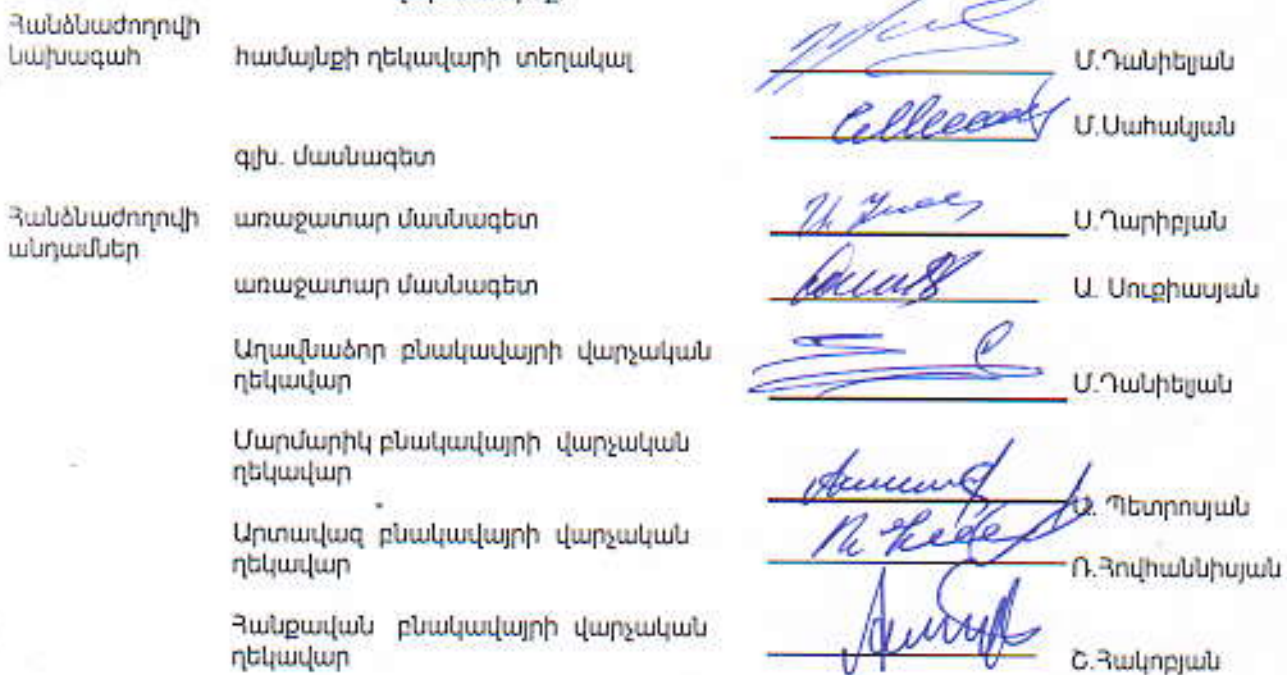 Հանձնաժողովի
նախագահ համայնքի ղեկավարի տեղակալ Մ.Դանիելյան
Մ.Սահակյան
գլխ. մասնագետ
Հանձնաժողովի առաջատար մասնագետ Ս.Ղարիբյան
անդամներ
առաջատար մասնագետ Ա. Սուքիասյան
Աղավնաձոր բնակավայրի վարչական
ղեկավար Մ.Դանիելյան
Մարմարիկ բնակավայրի վարչական
ղեկավար Պետրոսյան
Արտավազ բնակավայրի վարչական
ղեկավար Ռ.Հովհաննիսյան
Հանքավան բնակավայրի վարչական
ղեկավար Շ.Հակոբյան